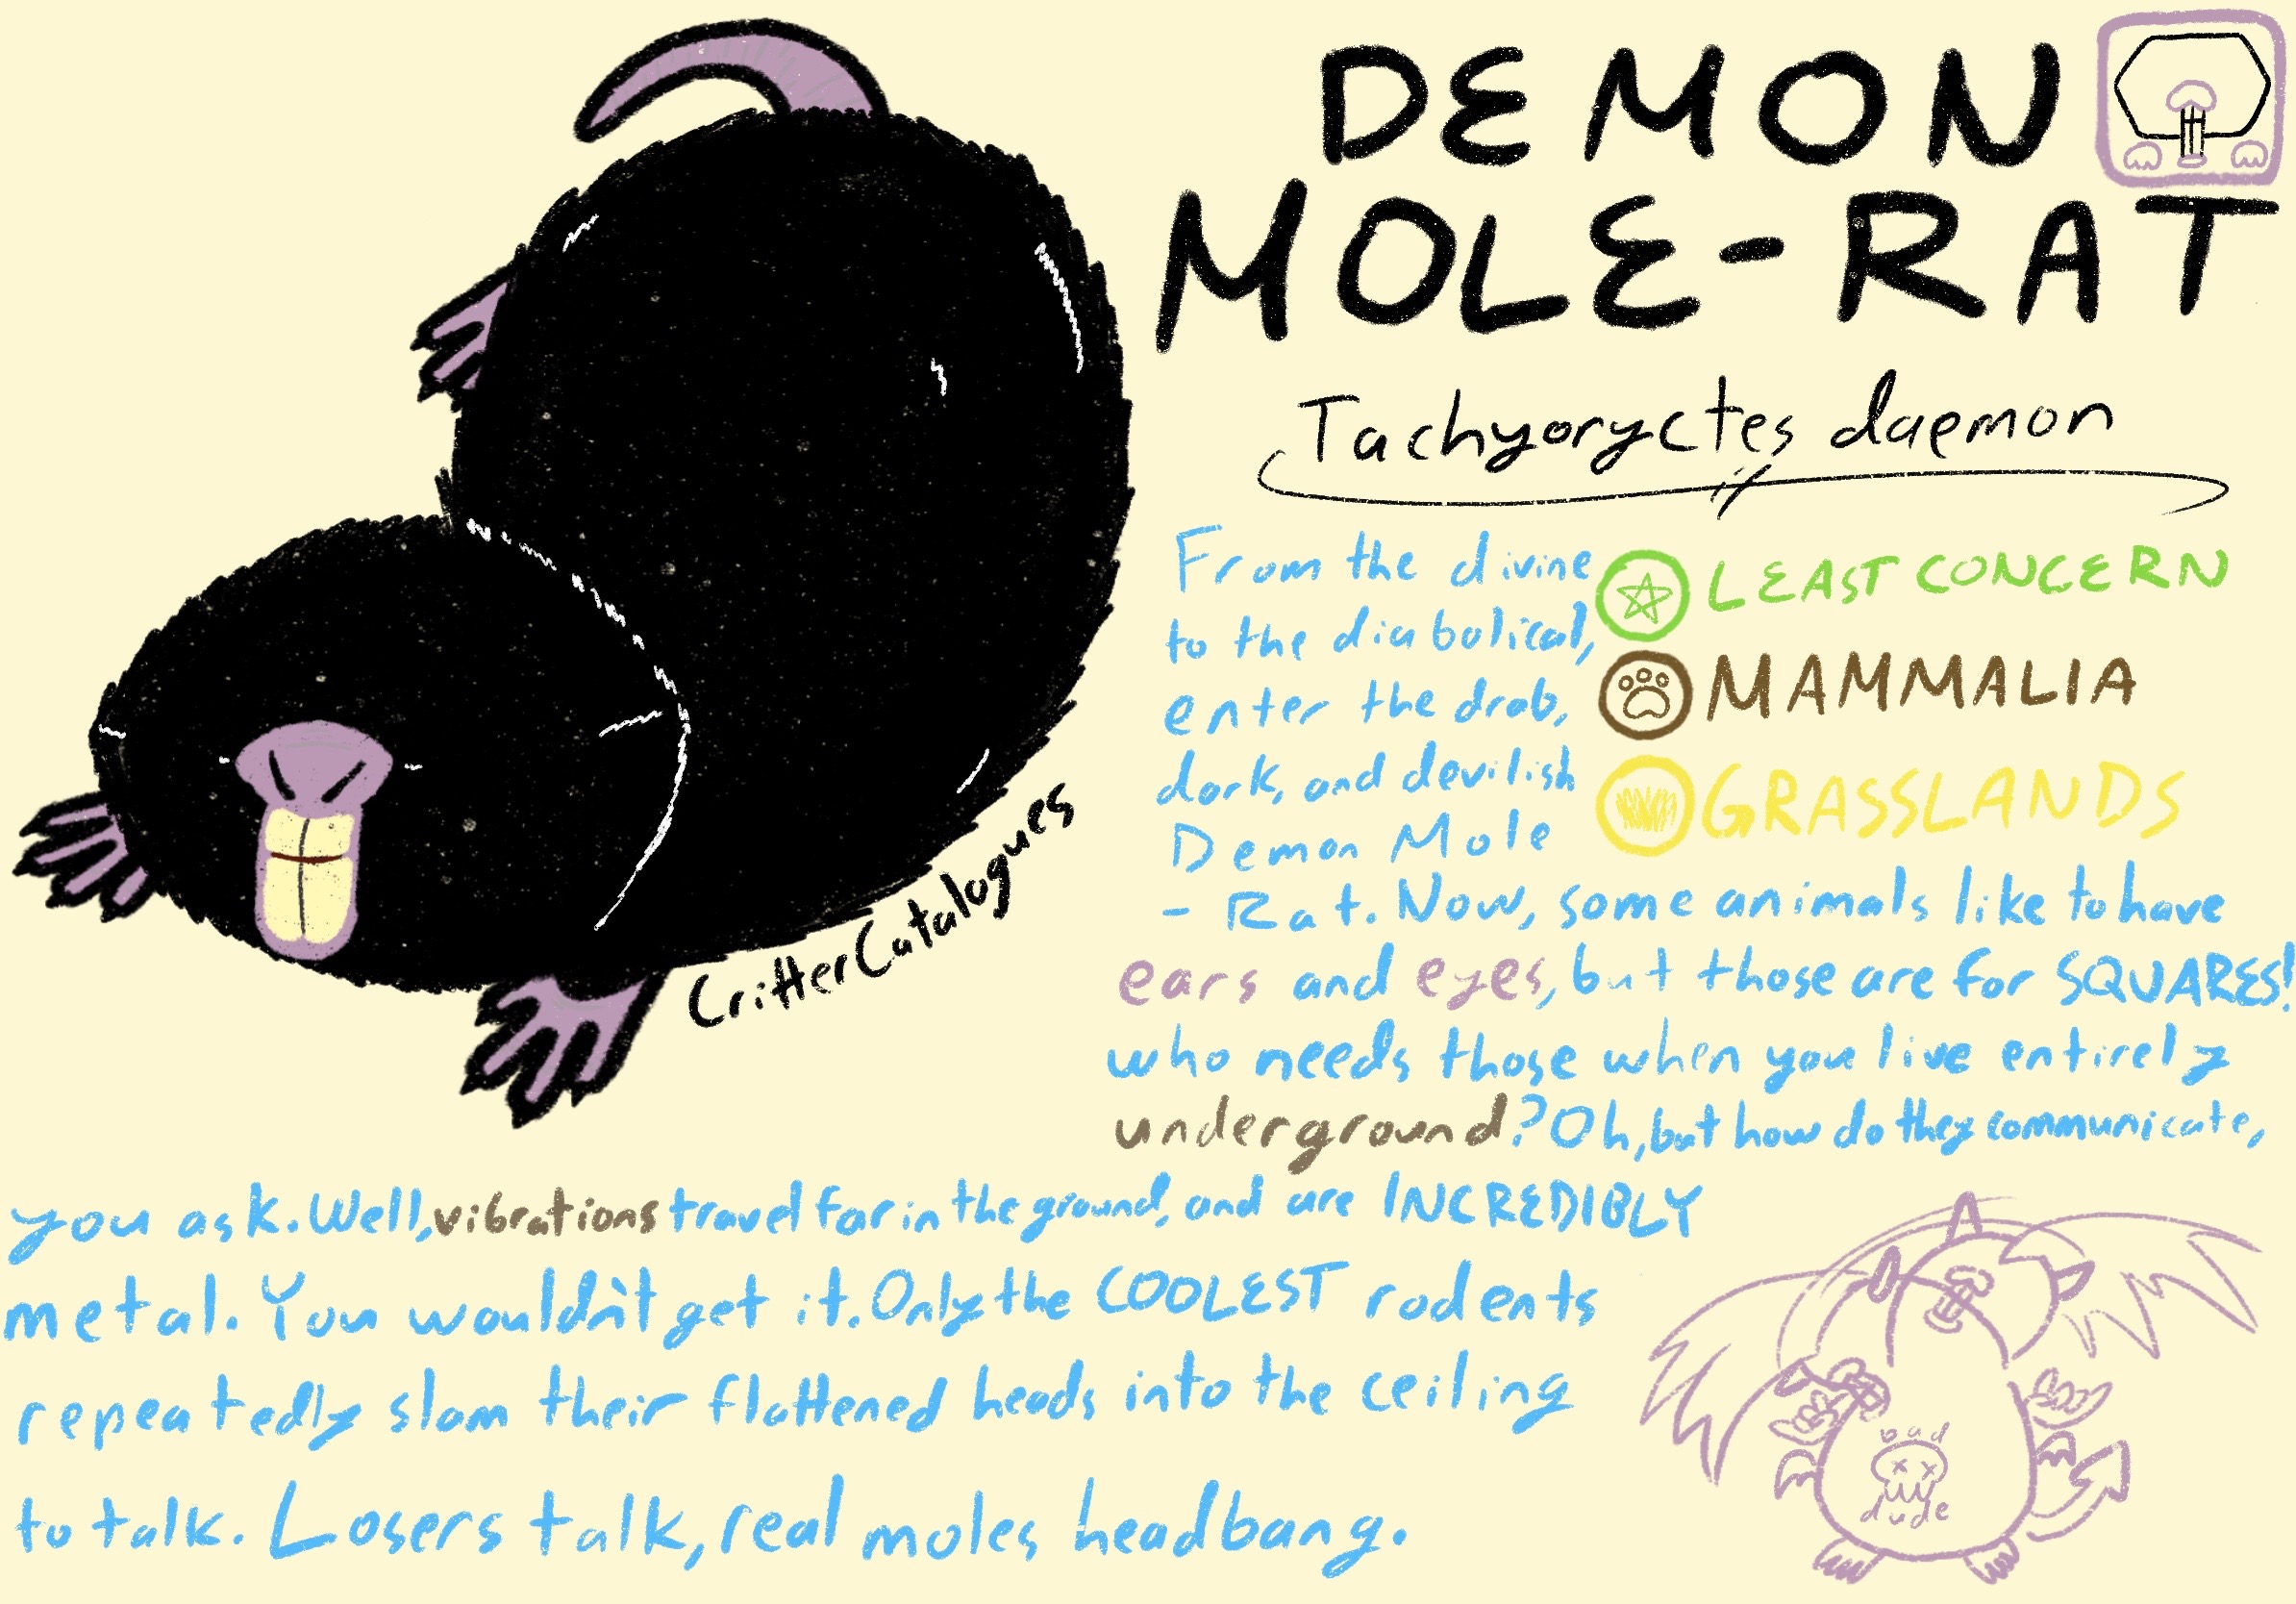 DEMON
MOLE-RAT
Tachyoryctes daemon
From the divine
to the diabolical,
enter the drab,
dark, and devilish
Demon Mole
- Rat. Now, some animals like to have
ears and eyes, but those are for SQUARES!
who needs those when you live entirely
underground? Oh, but how do they communicate,
you ask. Well, vibrations travel far in the ground, and are INCREDIBLY
metal. You wouldn't get it. Only the COOLEST rodents
repeatedly slam their flattened heads into the ceiling
to talk. Losers talk, real moles headbang.
LEAST CONCERN
MAMMALIA
GRASSLANDS
CritterCatalogues
bad
dude